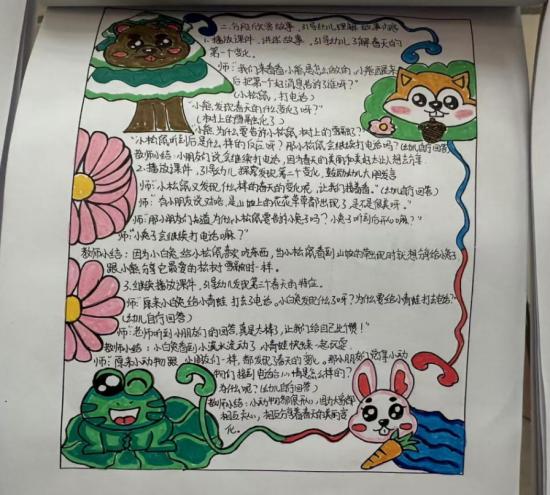 二、分段欣赏故事,引导幼儿理解故事内容
1.播放课件,讲述故事,引导幼儿了解春天的
第一个变化。
师:我们来看看小熊是怎么做的,小熊醒来
后把第一个好消息告诉了谁呀?"
(小松鼠,打电话)
"小熊发现春天的什么变化了呀?"
(树上的雪融化了)
"小熊为什么要告诉小松鼠,树上的雪融了?
"小松鼠听到后是什么样的反应呀?那小松鼠会继续打电话吗?(幼儿自行回答)
教师小结:小朋友们说会继续打电话,因为春天的美丽
2.播放课件,引导幼儿探索发现第二个变化,鼓励幼儿大胆发言
师:"小松鼠又发现什么样的春天的变化呢,让我们接着看。"(幼儿自行回答)
师:"有小朋友说对啦,是山坡上的花花草草都出现了,是不是很美呀。"
师:"那小朋友们知道为什么小松鼠要告诉小兔了吗?小兔子听到后开心嘛?"
师:"小兔子会继续打电话嘛?"
教师小结:因为小白兔
跟小熊
3.继续播放课件,引导幼儿发现第三个春天的特征。
师:原来小兔给小青蛙打去了电话。小白兔发现什么了呀?为什么要给小青蛙打去电话?"
(幼儿自行回答)
师:"老师听到小朋友们的回答真是太棒了,让我们给自己比个赞!"
教师小结:小白兔看到小溪水流动了,小青蛙快来一起玩耍
师:原来小动物跟小朋友们一样,都发现了春天的变化。那小朋友们觉得小动
物们接到电话后心情是怎么样的?
为什么呢?(幼儿自行回答)
教师小结:小动物都很开心,因为大家都
相互关心,相互分享着春天的美丽变
化。